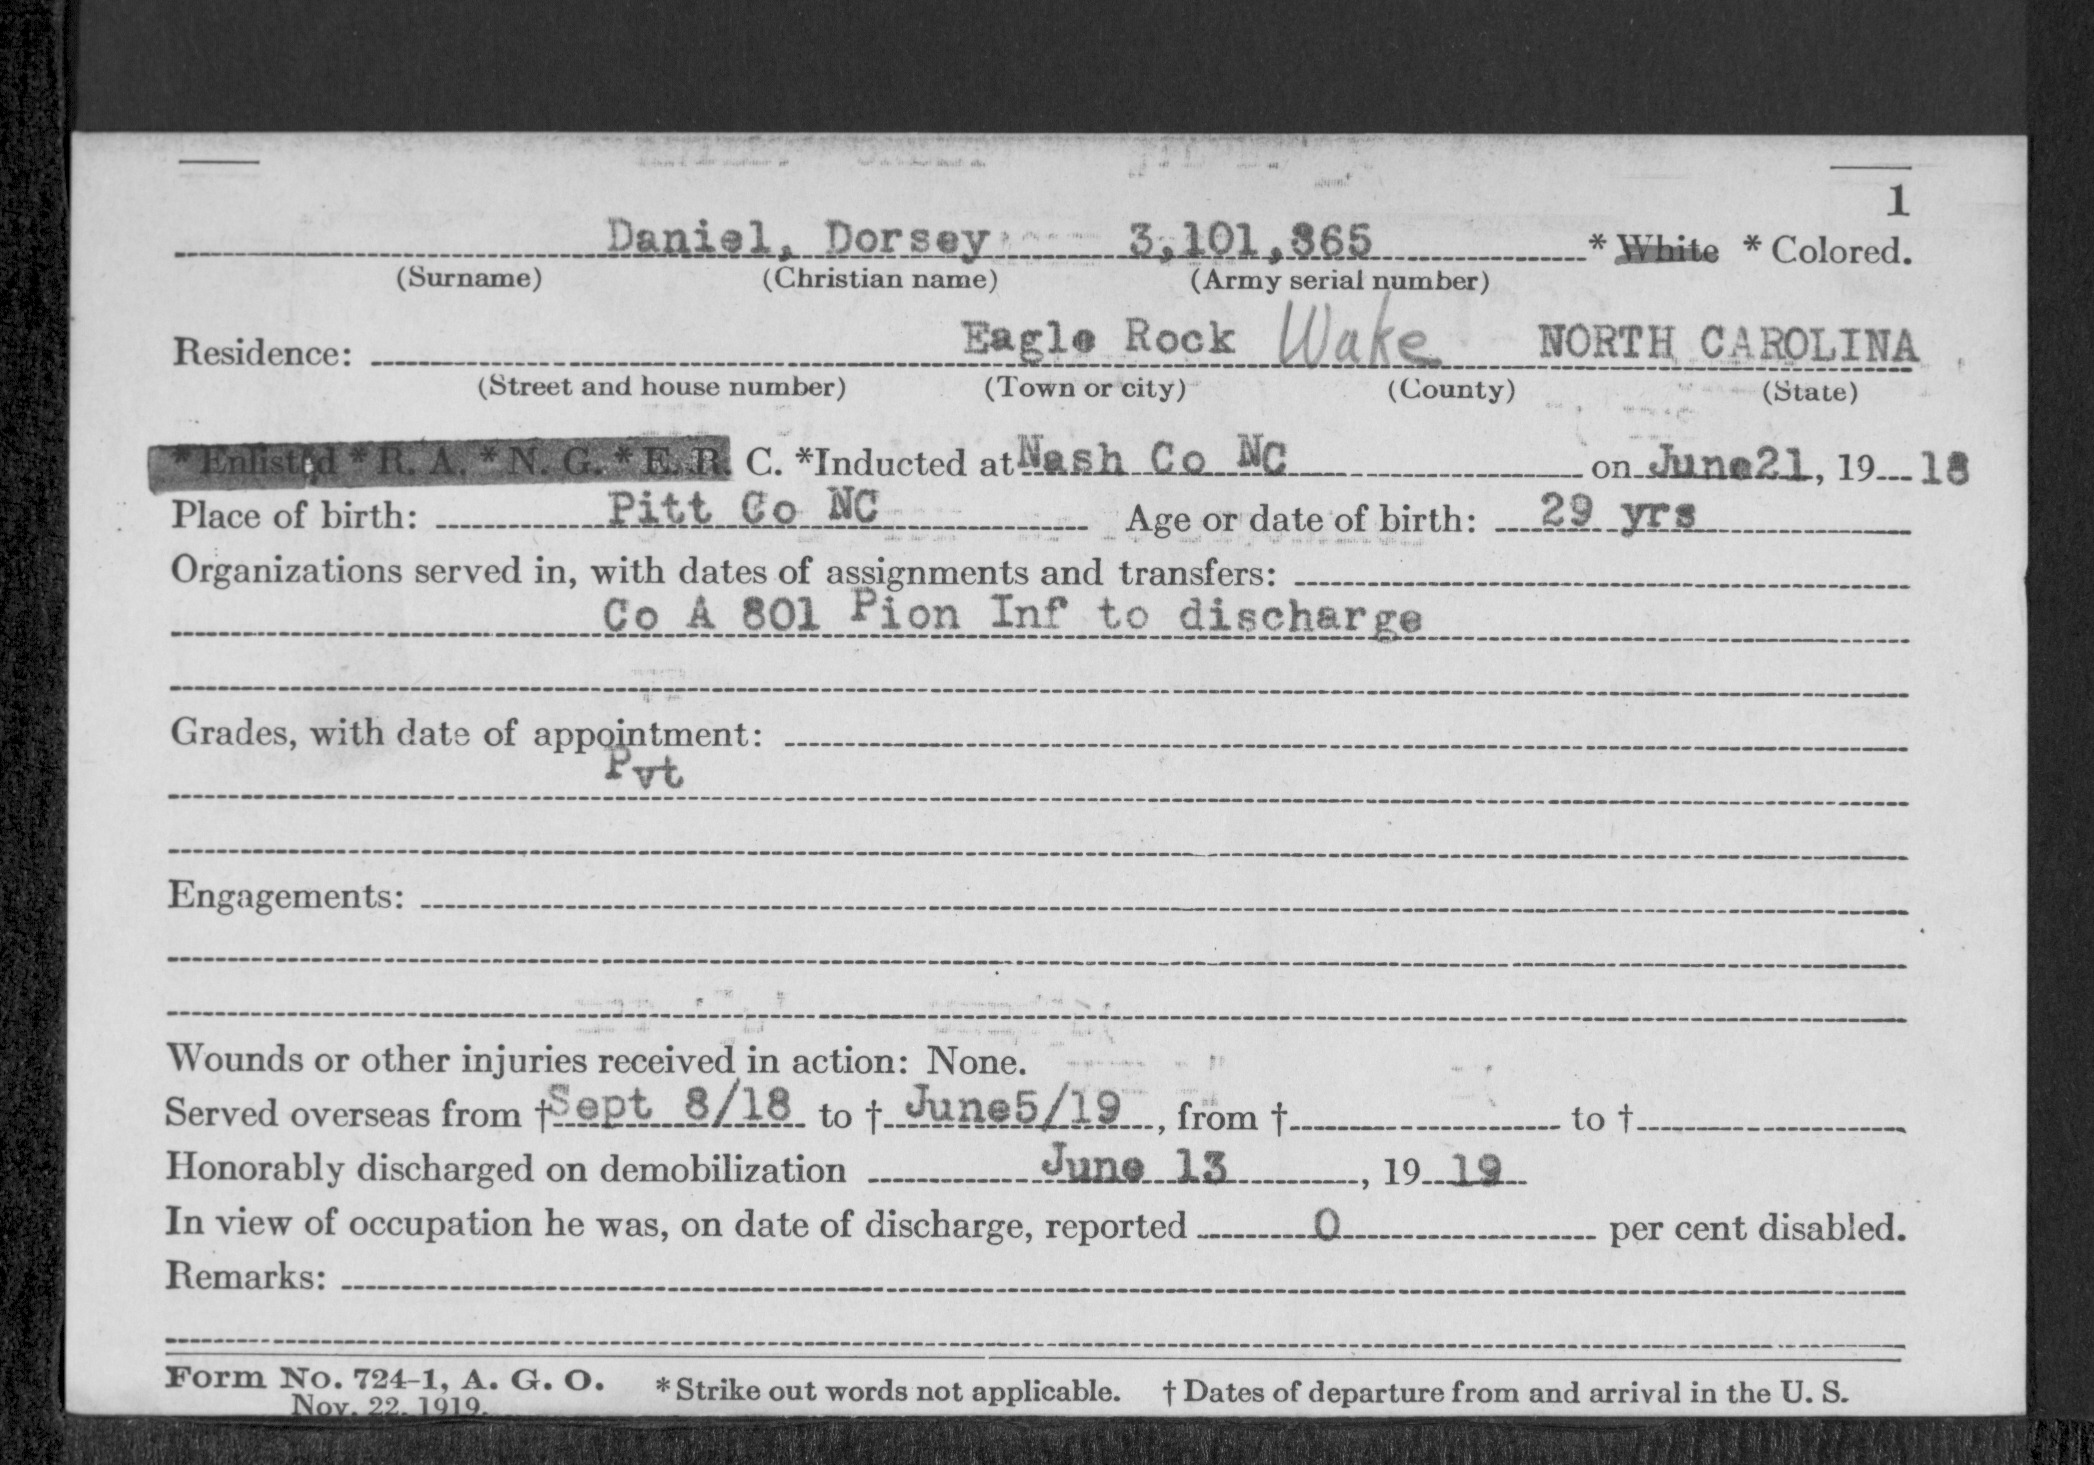 1
Daniel, Dorsey 3,101,865 * White * Colored.
(Surname) (Christian name) (Army serial number)
Residence: Eagle Rock Wake NORTH CAROLINA
(Street and house number) (Town or city) (County) (State)
*Enlisted *R. A. *N. G. *E. R. C. *Inducted at Nash Co NC on June21, 19 18
Place of birth: Pitt Co NC Age or date of birth: 29 yrs
Organizations served in, with dates of assignments and transfers:
Co A 801 Pion Inf to discharge
Grades, with date of appointment:
Pvt
Engagements:
Wounds or other injuries received in action: None.
Served overseas from † Sept 8/18 to † June5/19, from † to †
Honorably discharged on demobilization June 13, 19 19
In view of occupation he was, on date of discharge, reported 0 per cent disabled.
Remarks:
Form No. 724-1, A. G. O. *Strike out words not applicable. † Dates of departure from and arrival in the U. S.
Nov. 22, 1919.